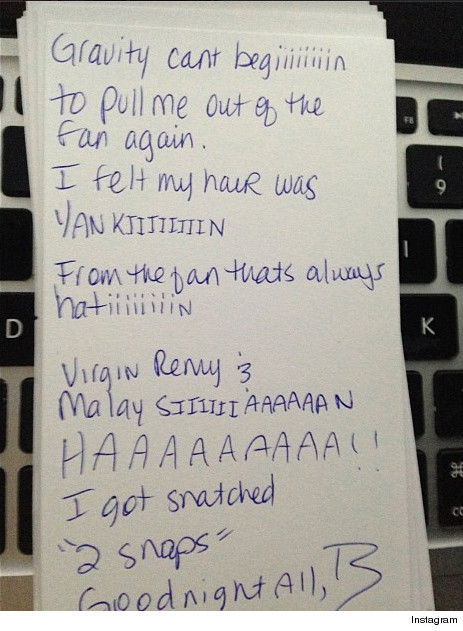 Gravity cant begiiiiiiiin
to pull me out of the
fan again.
I felt my hair was
YANKIIIIIIIIN
From the fan thats always
hatiiiiiiiiN
Virgin Remy &
Malay SIIIIIIAAAAAAN
HAAAAAAAAAA!!
I got snatched
"2 snaps"
Goodnight All, B
F8
(
9
I
D
K
⌘
co
Instagram